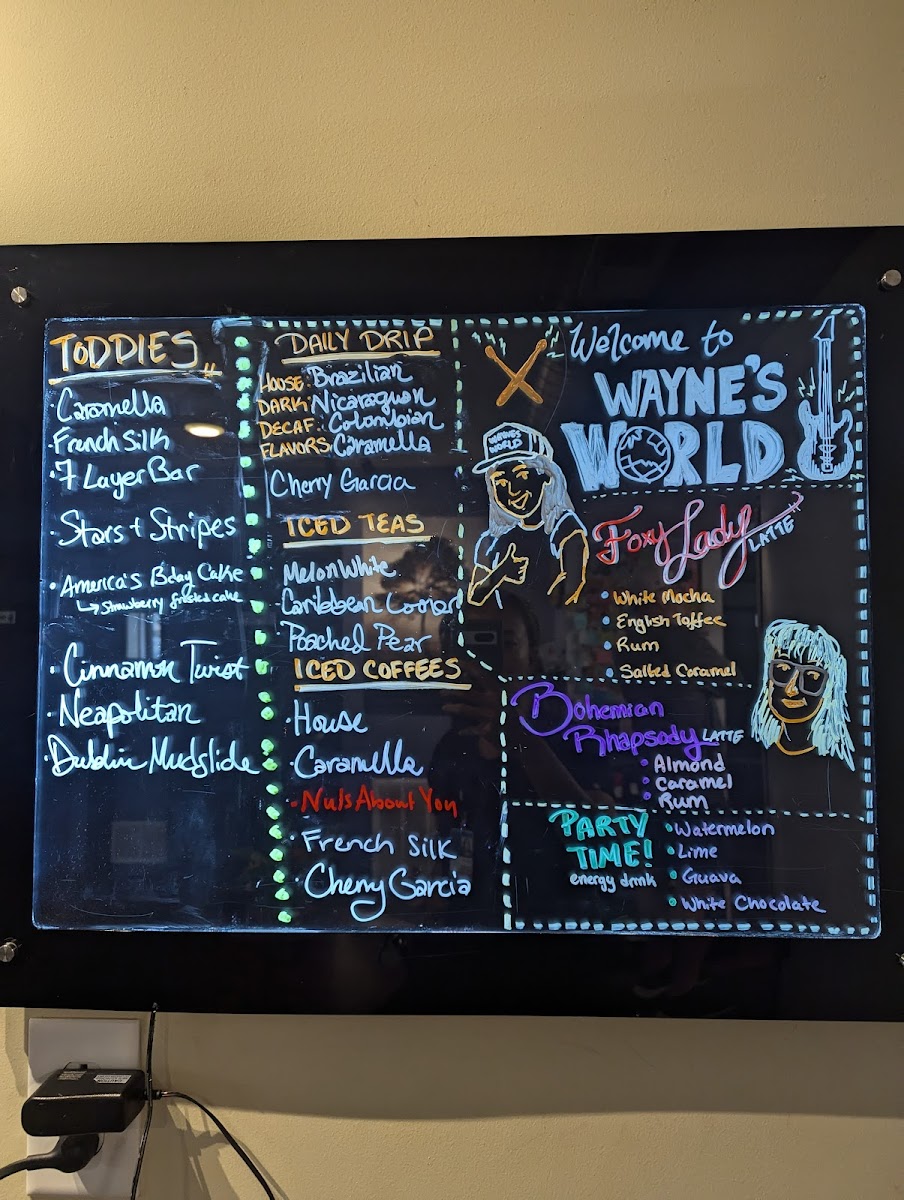 TODDIES
· Caramella
· French Silk
· 7 Layer Bar
· Stars + Stripes
· America's Bday Cake
↳ Strawberry frosted cake
· Cinnamon Twist
· Neapolitan
· Dublin Mudslide
DAILY DRIP
HOUSE: Brazilian
DARK: Nicaraguan
DECAF: Colombian
FLAVORS: Caramella
Cherry Garcia
ICED TEAS
Melon White
· Caribbean
· Poached Pear
ICED COFFEES
· House
· Caramella
· Nuts About You
· French Silk
· Cherry Garcia
Welcome to
WAYNE'S
WORLD
WAYNE'S
WORLD
Foxy Lady LATTE
• White Mocha
• English Toffee
• Rum
• Salted Caramel
Bohemian
Rhapsody LATTE
• Almond
• Caramel
• Rum
PARTY
TIME!
energy drink
• Watermelon
• Lime
• Guava
• White Chocolate